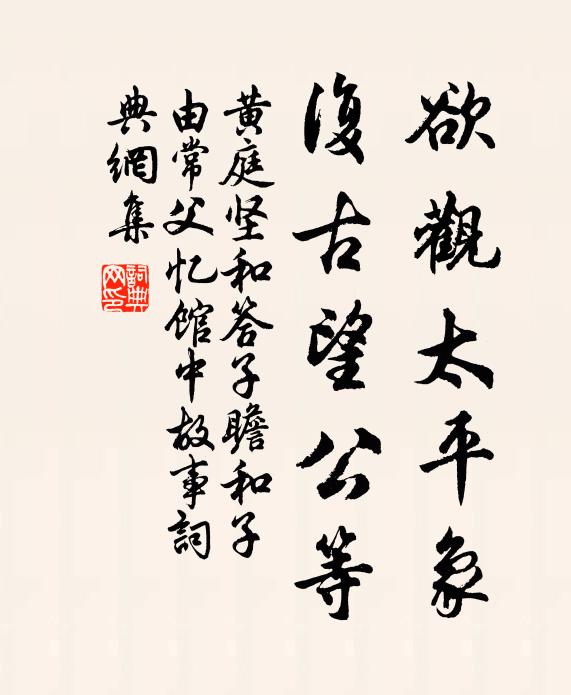 欲觀太平象
復古望公等
黄庭坚和答子瞻和子
由常父忆馆中故事詞
典網集
詞典網印